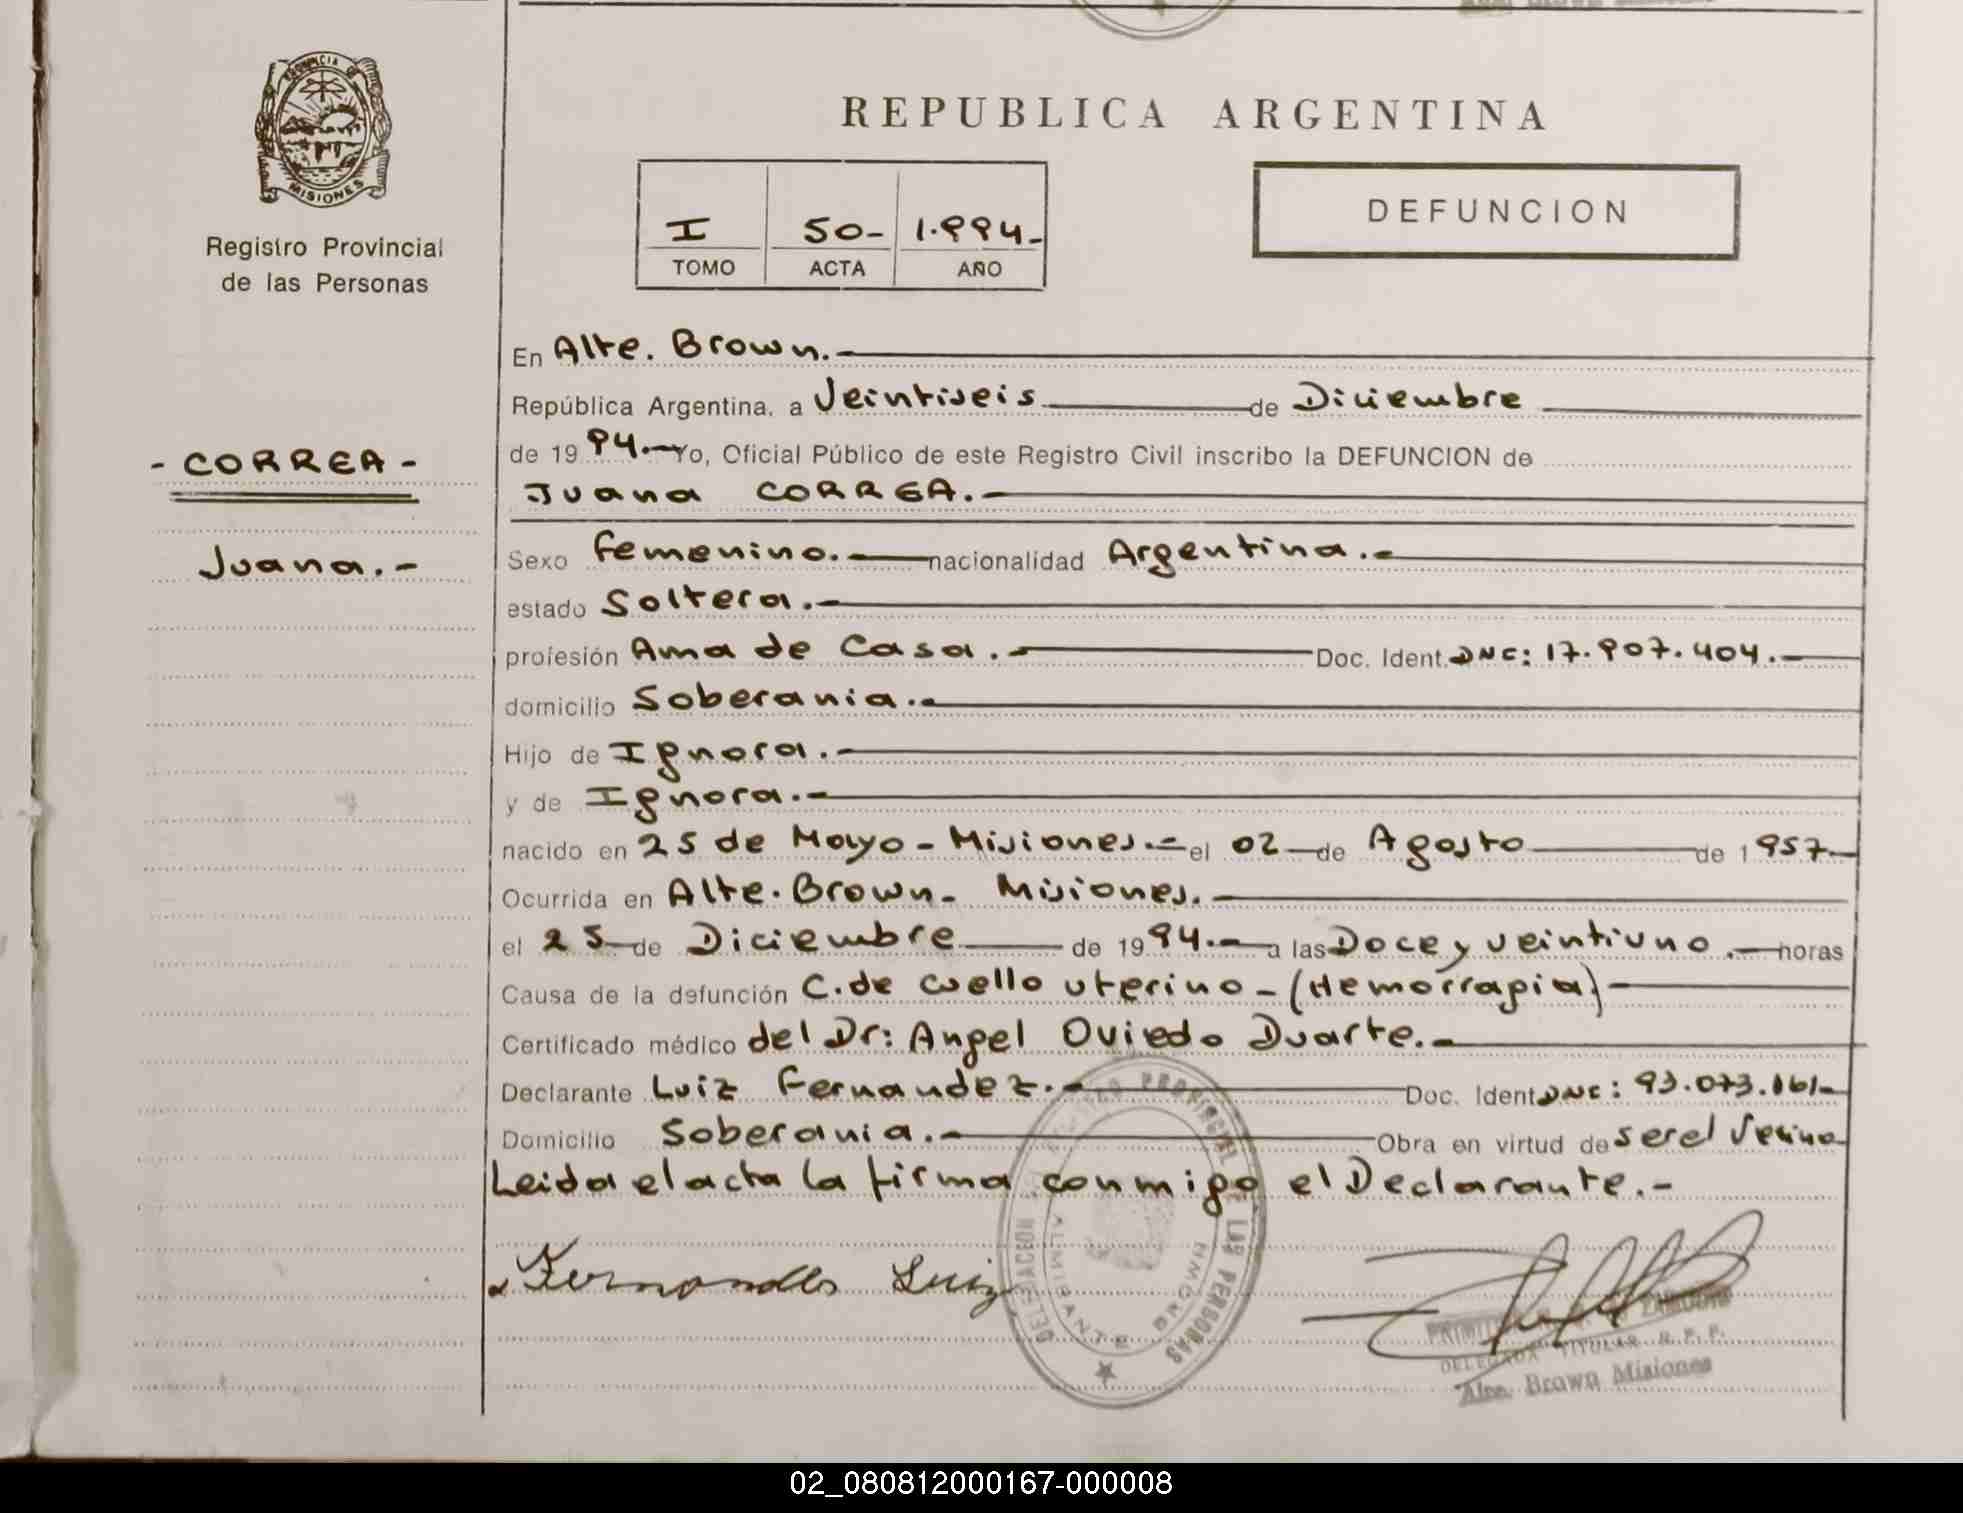 PROVINCIA DE
MISIONES
Registro Provincial
de las Personas
- CORREA -
Juana.-
REPUBLICA ARGENTINA
I 50- 1.994-
TOMO ACTA AÑO
DEFUNCION
En Alte. Brown.-
República Argentina, a Veintiseis de Diciembre
de 1994.- Yo, Oficial Público de este Registro Civil inscribo la DEFUNCION de
Juana CORREA.-
Sexo femenino.- nacionalidad Argentina.-
estado Soltera.-
profesión Ama de Casa.- Doc. Ident. DNC: 17.907.404.-
domicilio Soberania.-
Hijo de Ignora.-
y de Ignora.-
nacido en 25 de Mayo - Misiones.- el 02 de Agosto de 1957.-
Ocurrida en Alte. Brown - Misiones.-
el 25 de Diciembre de 1994.- a las Doce y veintiuno.- horas
Causa de la defunción C. de cuello uterino - (Hemorragia)-
Certificado médico del Dr: Angel Oviedo Duarte.-
Declarante Luiz Fernandez.- Doc. Ident DNC: 93.073.161-
Domicilio Soberania.- Obra en virtud de ser el Vecino
Leida el acta la firma conmigo el Declarante.-
Luiz
DELEGACION REGISTRO PROVINCIAL DE LAS PERSONAS
ALMIRANTE BROWN
DELEGADA TITULAR R. P. P.
Alte. Brown Misiones
02_080812000167-000008